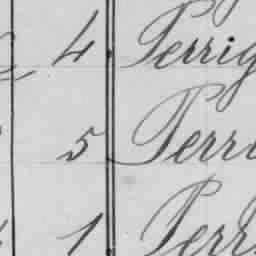 4 Perrig
5 Perri
1 Perr